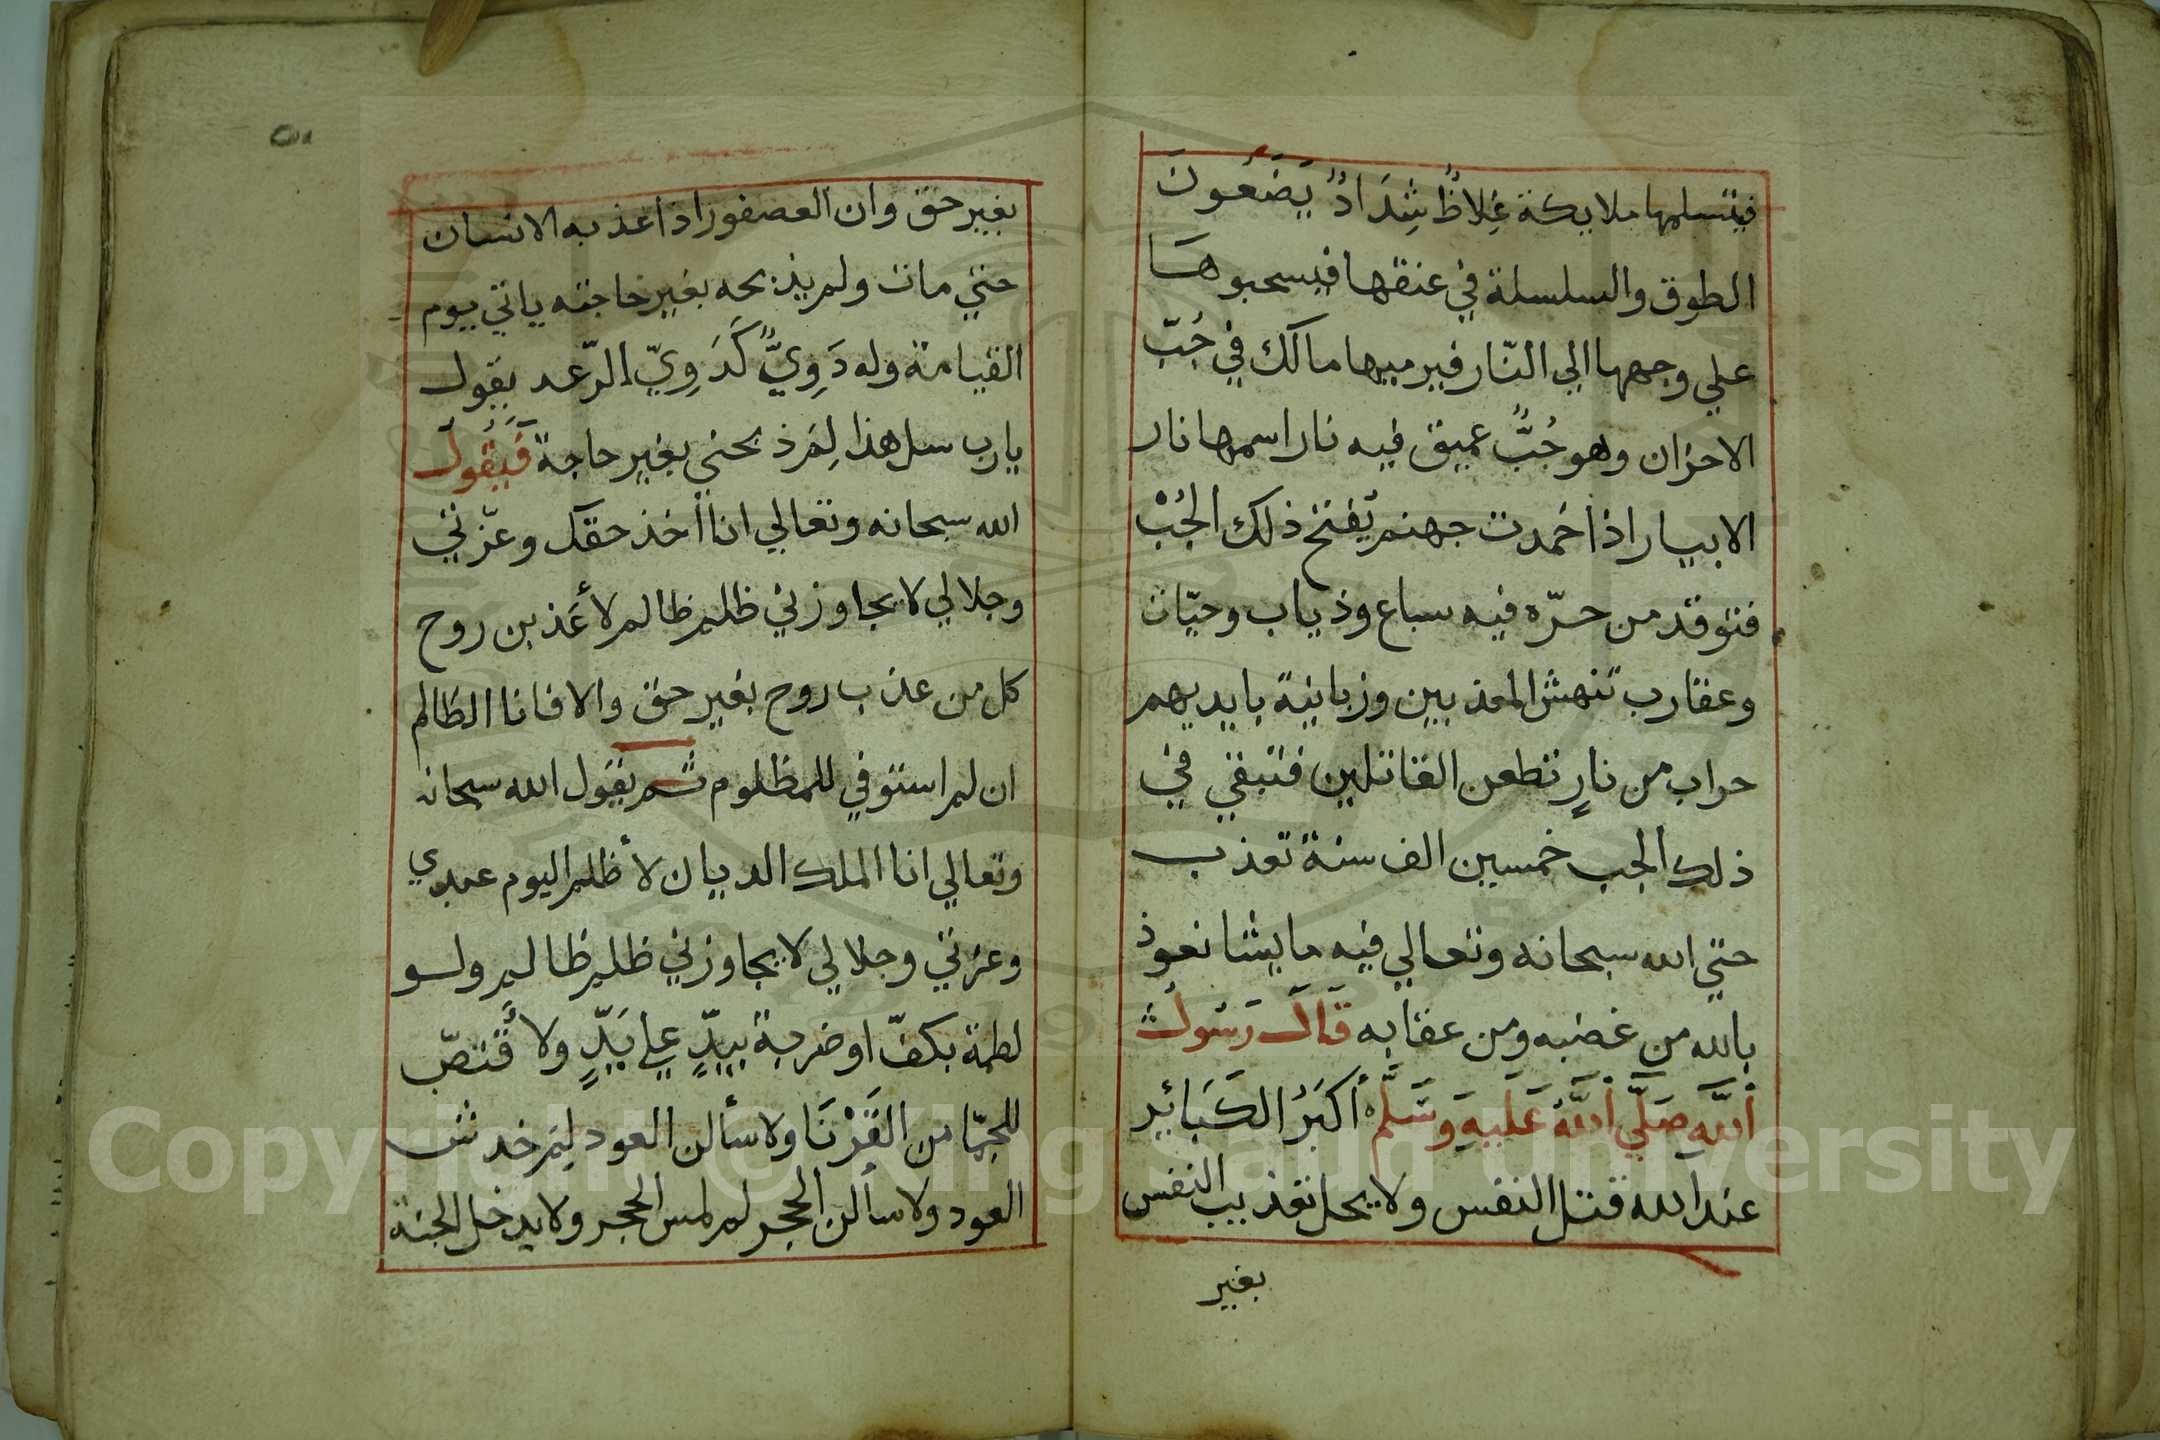 فيتسلمها ملايكة غِلاظٌ شِدَادٌ يَضَعُونَ
الطوق والسلسلة في عنقها فيسحبوهَا
علي وجهها الي النّار فيرميها مالك في جُبّ
الاحزان وهو جُبٌّ عميق فيه نار اسمها نار
الابيار اذا خمدت جهنم يُفتح ذلك الجُبْ
فتوقد من حرّه فيه سباع وذياب وحيّات
وعقارب تنهش المعذبين وزبانية بايديهم
حراب من نارٍ تطعن القاتلين فتبقي في
ذلك الجب خمسين الف سنة تعذب
حتي الله سبحانه وتعالي فيه ما يشا نعوذ
بالله من غضبه ومن عقابه قَالَ رَسُولُ
اللَّهِ صَلَّي اللَّهُ عَلَيهِ وَسَلَّم أكبَرُ الكَبَائِر
عند الله قتل النفس ولا يحل تعذيب النفس
بغير
بغير حق وان العصفور اذا عذبه الانسان
حتي مات ولم يذبحه بغير حاجته ياتي يوم
القيامة وله دَوِيٌّ كَدَوِيّ الرّعد يقول
يارب سل هذا لِمَ ذبحني بغير حاجة فَيَقُولُ
الله سبحانه وتعالي انا أخذ حقك وعزّتي
وجلالي لا يجاوزني ظلم ظالم لأعَذبن روح
كل من عذب روح بغير حق والا فانا الظالم
ان لم استوفي للمظلوم ثم يقول الله سبحانه
وتعالي انا الملك الديان لا أظلم اليوم عبدي
وعزتي وجلالي لا يجاوزني ظلم ظالم ولو
لطمة بكفّ او ضربة بيدٍّ علي يَدٍّ ولا قتصّ
للجمّا من القَرْنَا ولا سألن العود لِمَ خدش
العود ولا سألن الحجر لم لمس الحجر ولا يدخل الجنة
Copyright © King Saud University